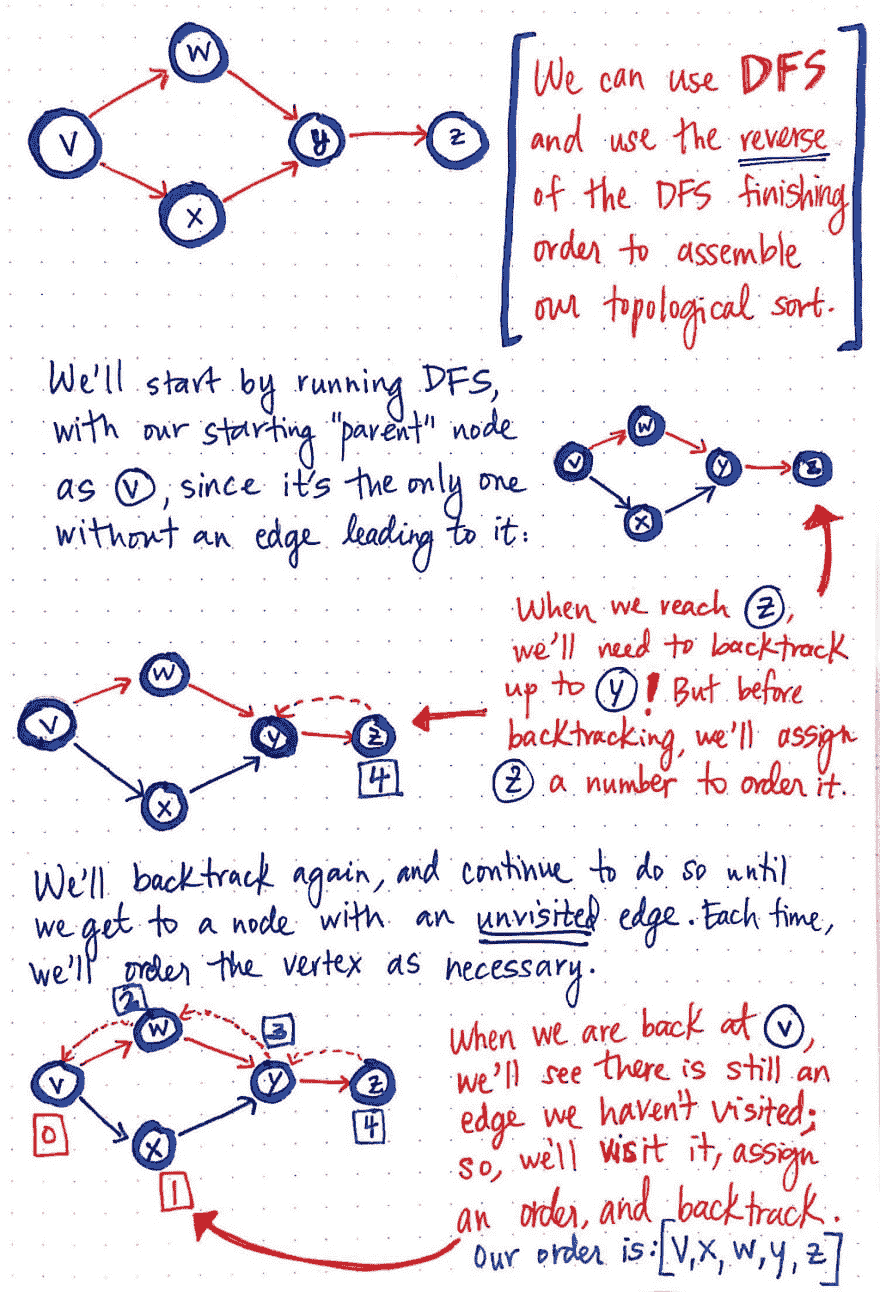 W
V
y
z
X
We can use DFS
and use the reverse
of the DFS finishing
order to assemble
our topological sort.
We'll start by running DFS,
with our starting "parent" node
as V, since it's the only one
without an edge leading to it:
W
V
y
z
X
When we reach z,
we'll need to backtrack
up to y! But before
backtracking, we'll assign
z a number to order it.
W
V
y
z
4
X
We'll backtrack again, and continue to do so until
we get to a node with an unvisited edge. Each time,
we'll order the vertex as necessary.
2
W
3
V
y
z
0
4
X
1
When we are back at V,
we'll see there is still an
edge we haven't visited;
so, we'll visit it, assign
an order, and backtrack.
Our order is: [V, X, W, y, z]